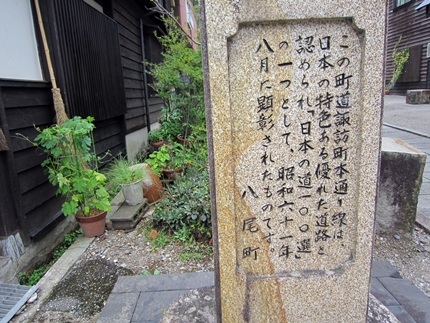 この町道諏訪町本通り線は
日本の特色ある優れた道路と
認められ「日本の道一〇〇選」
の一つとして、昭和六十一年
八月に顕彰されたものです。
八尾町